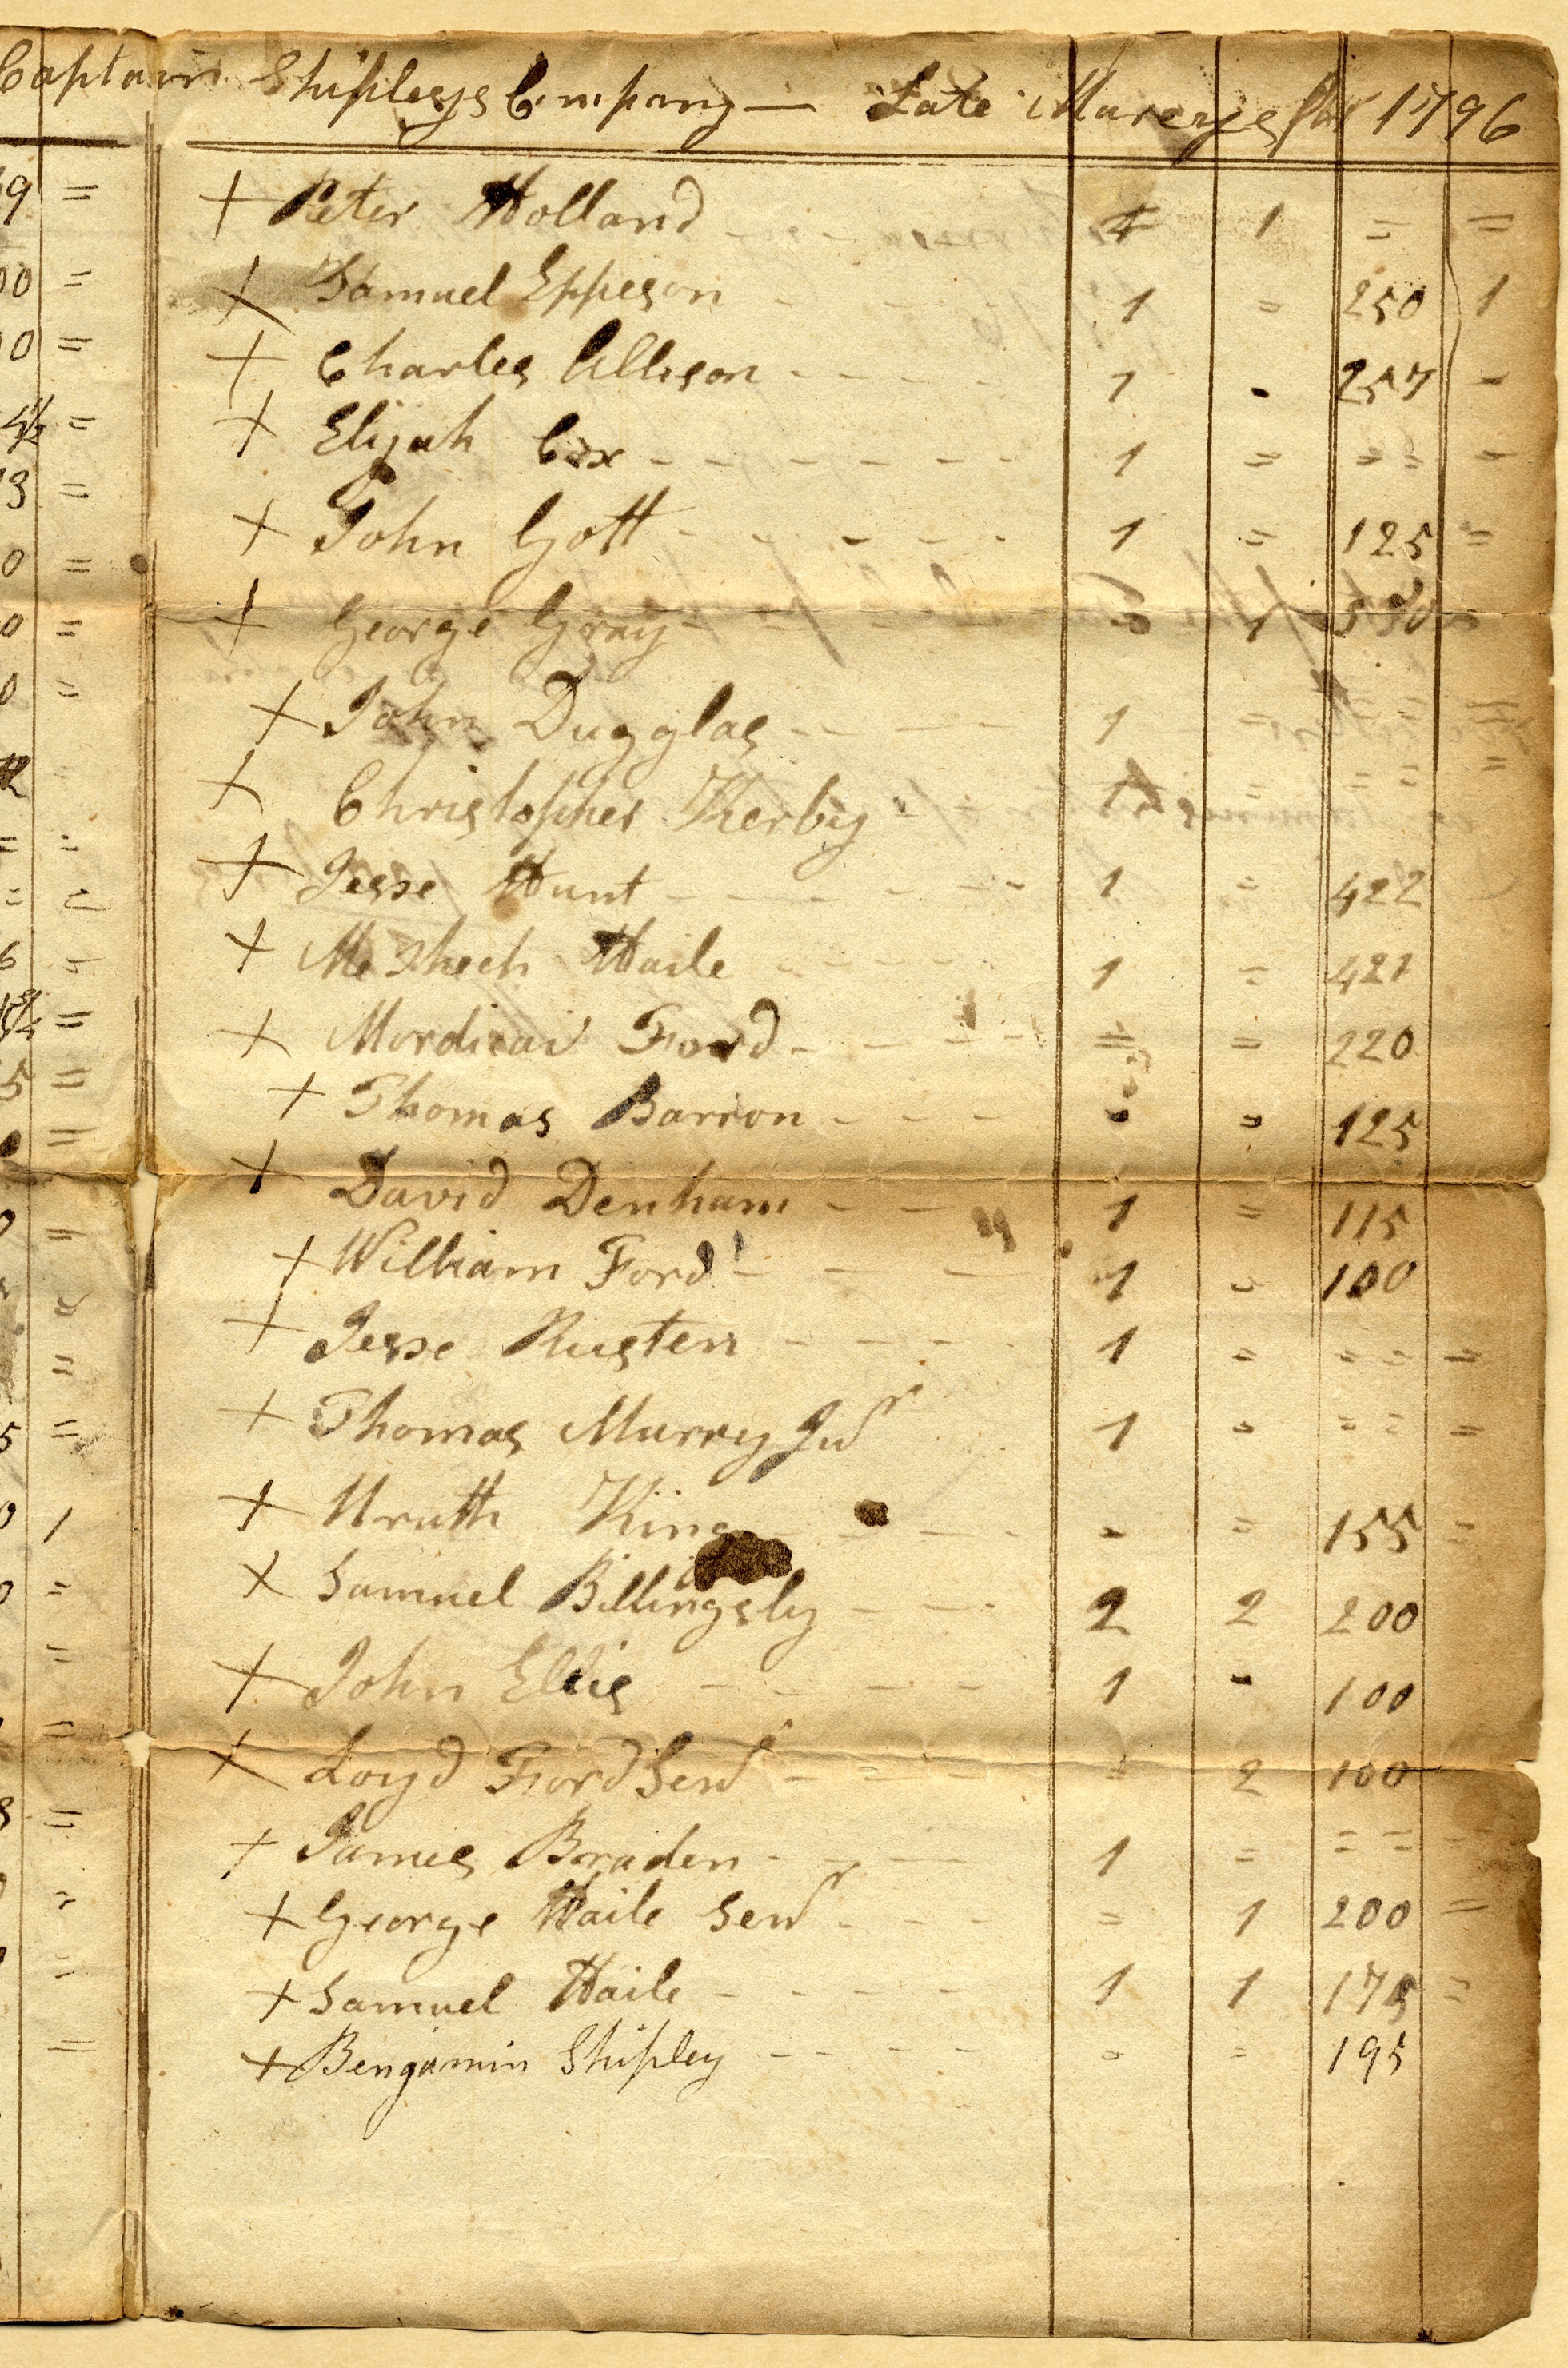 Captain Shipleys Company — Late Mareys for 1796
+ Peter Holland - - - - 1 = =
+ Samuel Eppeson - - - 1 = 250 1
+ Charles Allison - - - - 1 - 257 -
+ Elijah Cox - - - - - - 1 = = = =
+ John Gott - - - - - 1 = 125 =
+ George Gray - = 1
+ John Dugglas - - - - 1 = = = =
+ Christopher Kerby - 1 = = = =
+ Jesse Hunt - - - - - - 1 = 422
+ Meshech Haile - - - - 1 = 421
+ Mordicai Ford - - - - = = 220
+ Thomas Barron - - - = = 125
+ David Denham - - 1 = 115
+ William Ford - - - 1 = 100
+ Jesse Rusten - - - - 1 = = = =
+ Thomas Murry Jur 1 = = = =
+ Uruth King - - - - = = 155 =
+ Samuel Billingsly - - - 2 2 200
+ John Ellis - - - - 1 - 100
+ Loyd Ford Senr - - - = 2 100
+ James Braden - - - - 1 = = = = =
+ George Haile Senr - - - = 1 200 =
+ Samuel Haile - - - - - 1 1 175 =
+ Bengamin Shipley - - - - - = = 195
9 =
0 =
0 =
4½ =
3 =
0 =
0 =
0 =
= =
= =
6 =
5 =
=
=
=
=
5 =
1
=
=
=
=
=
=
=